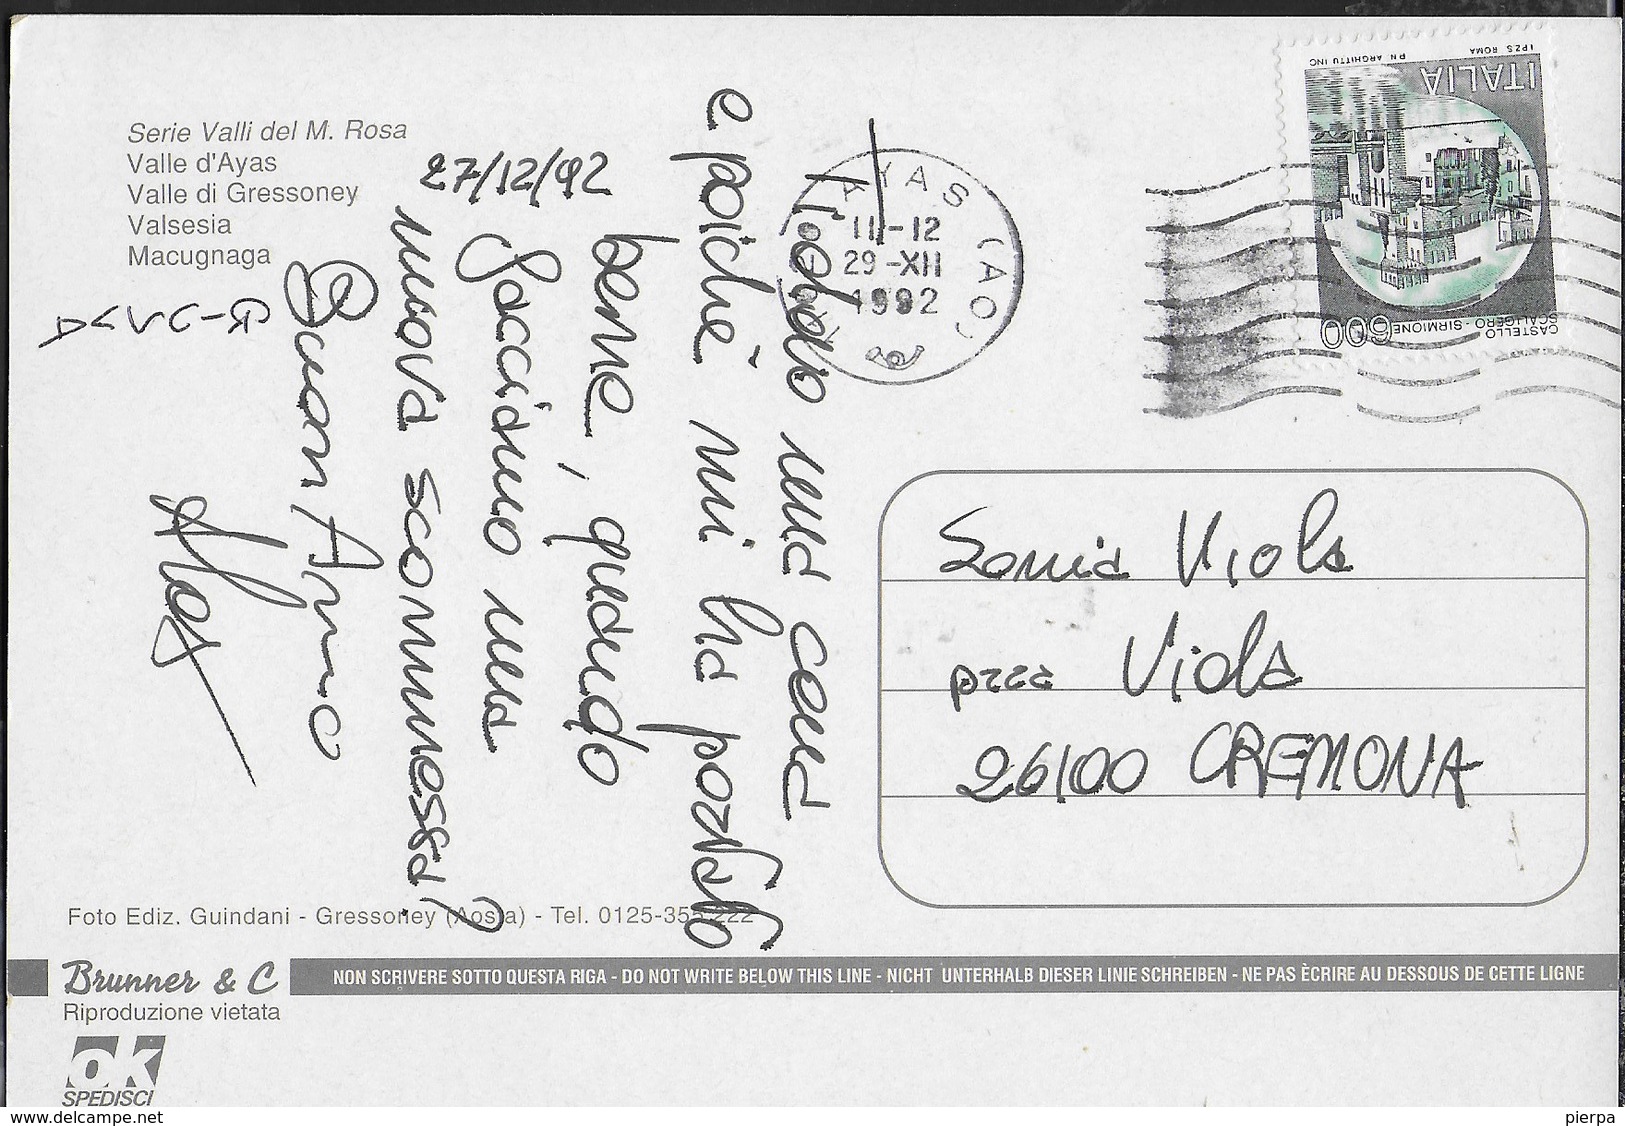 Serie Valli del M. Rosa
Valle d'Ayas
Valle di Gressoney
Valsesia
Macugnaga
27/12/92
Ti devo una cena
e poiché mi ha portato
bene, quando
facciamo una
nuova scommessa?
Buon Anno
AYAS (AO)
11-12
29-XII
1992
I.P.Z.S. ROMA
P.N. ARGHITTU INC
ITALIA
CASTELLO
SCALIGERO - SIRMIONE
600
Sonia Viola
Viola
26100 CREMONA
Foto Ediz. Guindani - Gressoney (Aosta) - Tel. 0125-355 222
Brunner & C
NON SCRIVERE SOTTO QUESTA RIGA - DO NOT WRITE BELOW THIS LINE - NICHT UNTERHALB DIESER LINIE SCHREIBEN - NE PAS ÈCRIRE AU DESSOUS DE CETTE LIGNE
Riproduzione vietata
OK
SPEDISCI
www.delcampe.net
pierpa